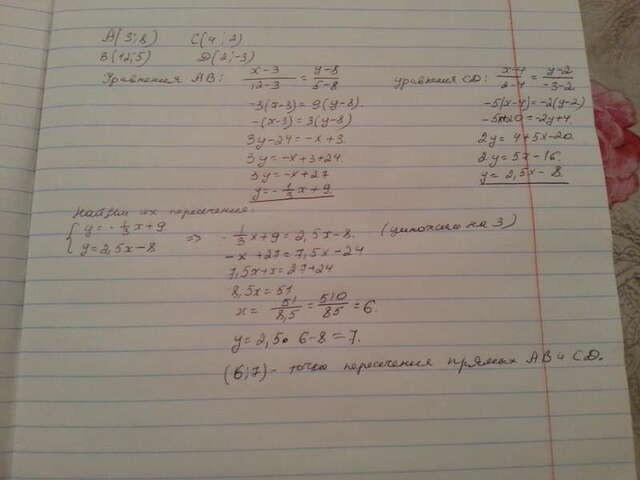 A(3;8) C(4;2)
B(12;5) D(2;-3)
Уравнения AB: x-3/12-3 = y-8/5-8
-3(x-3)=9(y-8).
-(x-3)=3(y-8)
3y-24=-x+3.
3y=-x+3+24.
3y=-x+27
y=-1/3x+9
уравнения CD: x-4/2-4 = y-2/-3-2
-5(x-4)=-2(y-2)
-5x+20=-2y+4.
2y=4+5x-20.
2y=5x-16.
y=2,5x-8.
Найдём их пересечения:
{y=-1/3x+9
y=2,5x-8 => -1/3x+9=2,5x-8. (умножаем на 3)
-x+27=7,5x-24
7,5x+x=27+24
8,5x=51
x=51/8,5=510/85=6.
y=2,5•6-8=7.
(6;7)- точка пересечения прямых AB и CD.